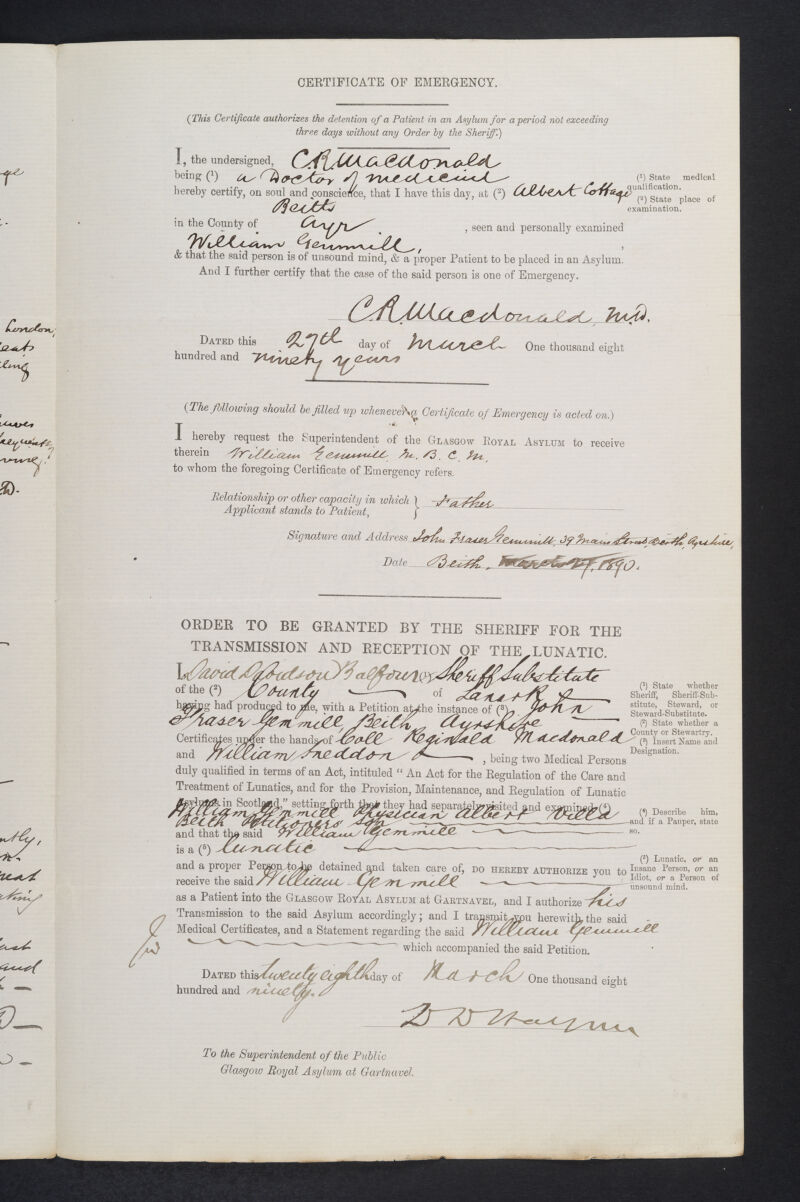 CERTIFICATE OF EMERGENCY.
(This Certificate authorizes the detention of a Patient in an Asylum for a period not exceeding
three days without any Order by the Sheriff.)
I, the undersigned, C. R. Macdonald
being (1) a Doctor of medicine
(1) State medical
qualification.
hereby certify, on soul and conscience, that I have this day, at (2) Albert Cottage
Beith
(2) State place of
examination.
in the County of Ayr , seen and personally examined
William Gemmill, ,
& that the said person is of unsound mind, & a proper Patient to be placed in an Asylum.
And I further certify that the case of the said person is one of Emergency.
C. R. Macdonald, M.D.
DATED this 27th day of March One thousand eight
hundred and ninety years
(The following should be filled up whenever a Certificate of Emergency is acted on.)
I hereby request the Superintendent of the GLASGOW ROYAL ASYLUM to receive
therein William Gemmill, M. B. C. M.
to whom the foregoing Certificate of Emergency refers.
Relationship or other capacity in which
Applicant stands to Patient, } Father
Signature and Address John Fraser Gemmill, 39 Main Street, Beith, Ayrshire,
Date Beith, March 27, 1890.
ORDER TO BE GRANTED BY THE SHERIFF FOR THE
TRANSMISSION AND RECEPTION OF THE LUNATIC.
I, David Davidson Balfour, Sheriff Substitute
of the (2) County of Lanark
(1) State whether
Sheriff, Sheriff-Sub-
stitute, Steward, or
Steward-Substitute.
having had produced to me, with a Petition at the instance of (3) John
Fraser Gemmill Beith Ayrshire
(2) State whether a
County or Stewartry.
Certificates under the hands of Coll Reginald Macdonald
(3) Insert Name and
Designation.
and William Sneddon , being two Medical Persons
duly qualified in terms of an Act, intituled "An Act for the Regulation of the Care and
Treatment of Lunatics, and for the Provision, Maintenance, and Regulation of Lunatic
Asylums in Scotland," setting forth that they had separately visited and examined (4)
William Gemmill Physician Albert Villa
Beith Petitioners son
(4) Describe him,
and if a Pauper, state
so.
and that the said William Gemmill
is a (5) lunatic
and a proper Person to be detained and taken care of, DO HEREBY AUTHORIZE you to
(5) Lunatic, or an
Insane Person, or an
Idiot, or a Person of
unsound mind.
receive the said William Gemmill
as a Patient into the GLASGOW ROYAL ASYLUM at GARTNAVEL, and I authorize his
Transmission to the said Asylum accordingly; and I transmit you herewith the said
Medical Certificates, and a Statement regarding the said William Gemmill
which accompanied the said Petition.
DATED this twenty eighth day of March One thousand eight
hundred and ninety.
To the Superintendent of the Public
Glasgow Royal Asylum at Gartnavel.